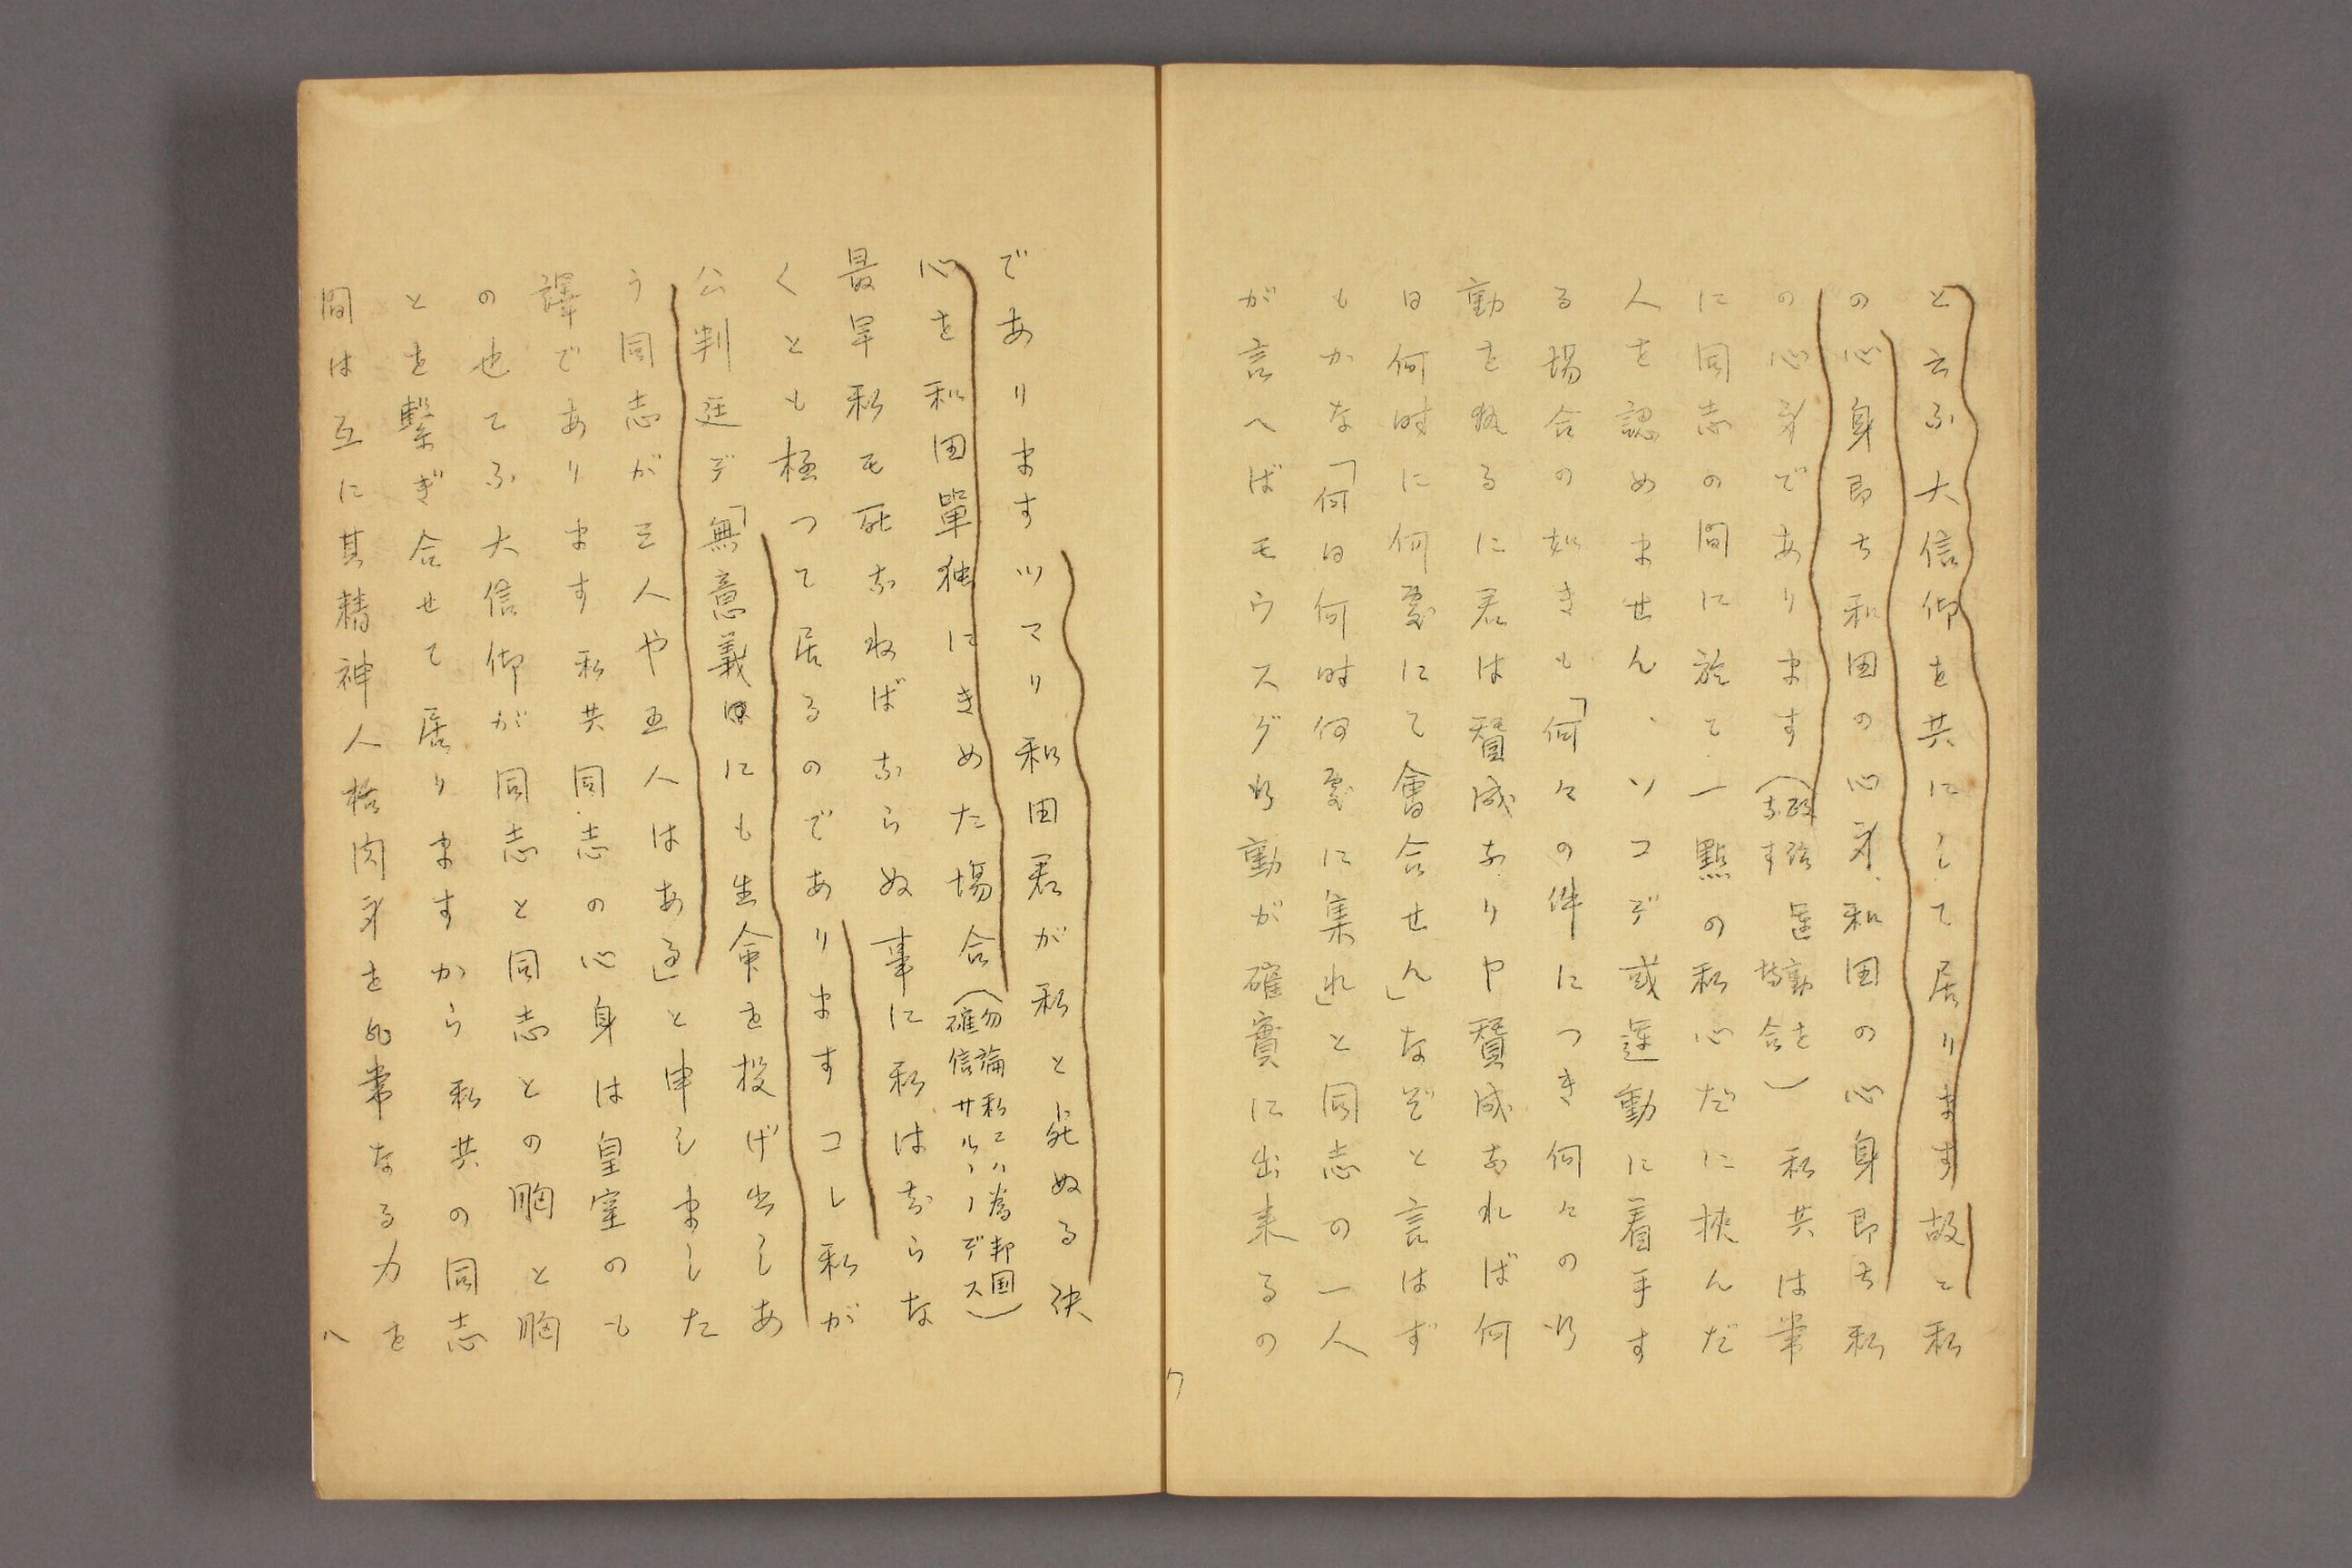 と云ふ大信仰を共にして居ります故に私
の心身即ち和田の心身、和田の心身即ち私
の心身であります(政治運動を
なす場合)私共は常
に同志の間に於て一點の私心だに挾んだ
人を認めません、ソコデ或運動に着手す
る場合の如きも「何々の件につき何々の行
動を執るに君は賛成なりや賛成なれば何
日何時に何處にて會合せん」なぞと言はず
もがな「何日何時何處に集れ」と同志の一人
が言へばモウスグ行動が確實に出来るの
七
であります ツマリ和田君が私と死ぬる決
心を和田單独にきめた場合(勿論私ニハ為邦国
確信サルヽノデス)
最早私モ死なねばならぬ事に私はなら な
くとも極つて居るのでありますコレ私が
公判廷デ「無意義にも生命を投げ出しあ
う同志が三人や五人はある」と申しました
譯であります私共同志の心身は皇室のも
の也てふ大信仰が同志と同志との胸と胸
とを繋ぎ合せて居りますから私共の同志
間は互に其精神人格肉身を非常なる力を
八